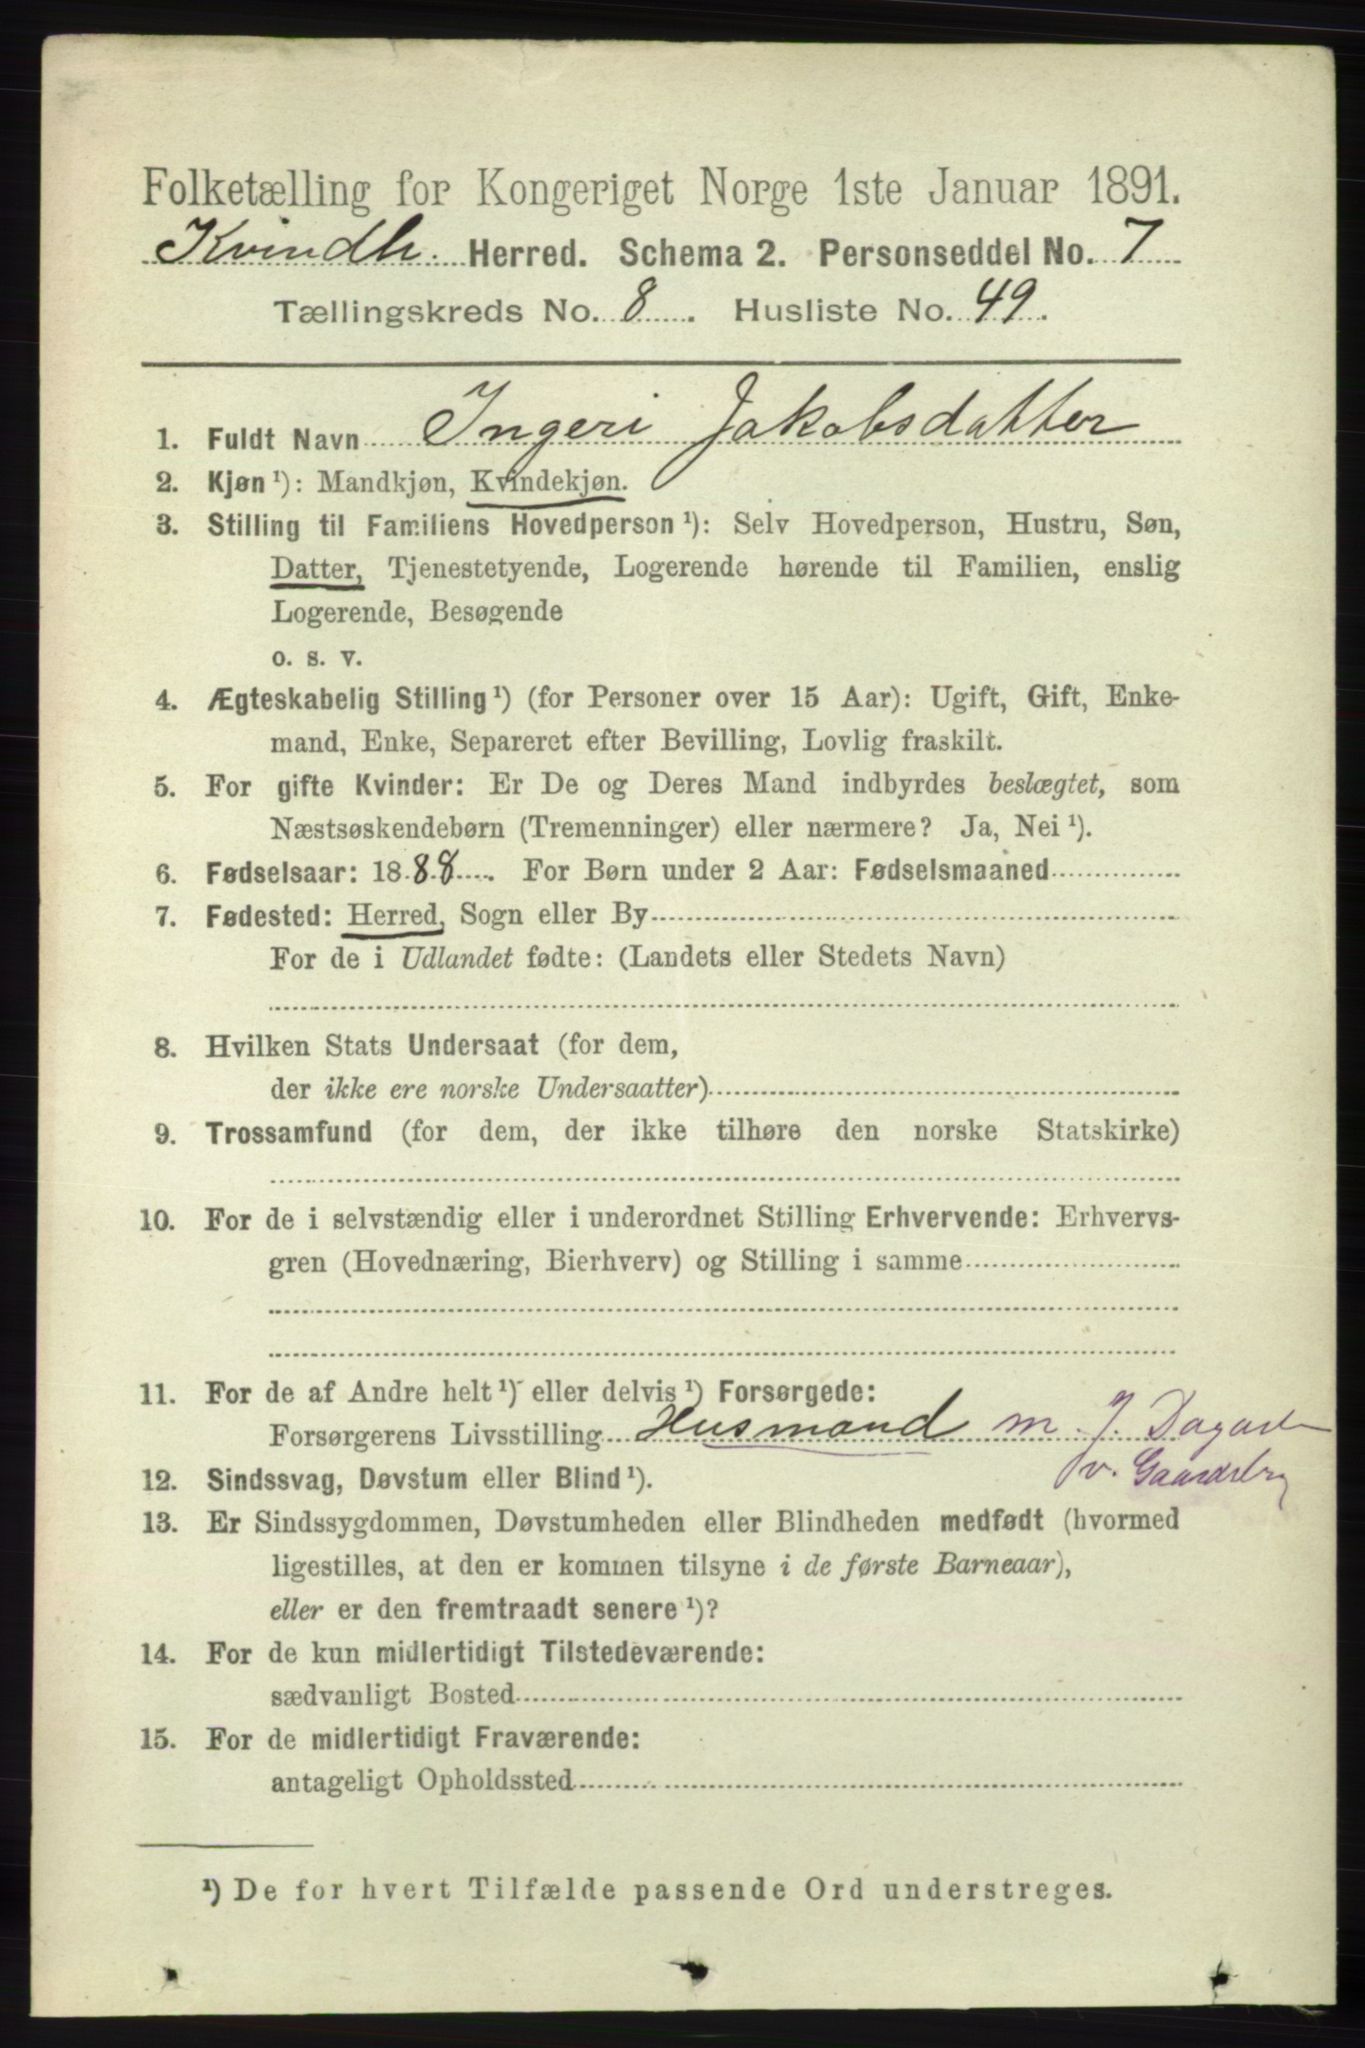 Folketælling for Kongeriget Norge 1ste Januar 1891.
Kvindh. Herred. Schema 2. Personseddel No. 7
Tællingskreds No. 8. Husliste No. 49.
1. Fuldt Navn Ingeri Jakobsdatter
2. Kjøn ¹): Mandkjøn, Kvindekjøn.
3. Stilling til Familiens Hovedperson ¹): Selv Hovedperson, Hustru, Søn,
Datter, Tjenestetyende, Logerende hørende til Familien, enslig
Logerende, Besøgende
o. s. v.
4. Ægteskabelig Stilling ¹) (for Personer over 15 Aar): Ugift, Gift, Enke-
mand, Enke, Separeret efter Bevilling, Lovlig fraskilt.
5. For gifte Kvinder: Er De og Deres Mand indbyrdes beslægtet, som
Næstsøskendebørn (Tremenninger) eller nærmere? Ja, Nei ¹).
6. Fødselsaar: 1888. For Børn under 2 Aar: Fødselsmaaned
7. Fødested: Herred, Sogn eller By
For de i Udlandet fødte: (Landets eller Stedets Navn)
8. Hvilken Stats Undersaat (for dem,
der ikke ere norske Undersaatter)
9. Trossamfund (for dem, der ikke tilhøre den norske Statskirke)
10. For de i selvstændig eller i underordnet Stilling Erhvervende: Erhvervs-
gren (Hovednæring, Bierhverv) og Stilling i samme
11. For de af Andre helt ¹) eller delvis ¹) Forsørgede:
Forsørgerens Livsstilling Husmand m. J. Dagarb
v. Gaardsbr
12. Sindssvag, Døvstum eller Blind ¹).
13. Er Sindssygdommen, Døvstumheden eller Blindheden medfødt (hvormed
ligestilles, at den er kommen tilsyne i de første Barneaar),
eller er den fremtraadt senere ¹)?
14. For de kun midlertidigt Tilstedeværende:
sædvanligt Bosted
15. For de midlertidigt Fraværende:
antageligt Opholdssted
¹) De for hvert Tilfælde passende Ord understreges.